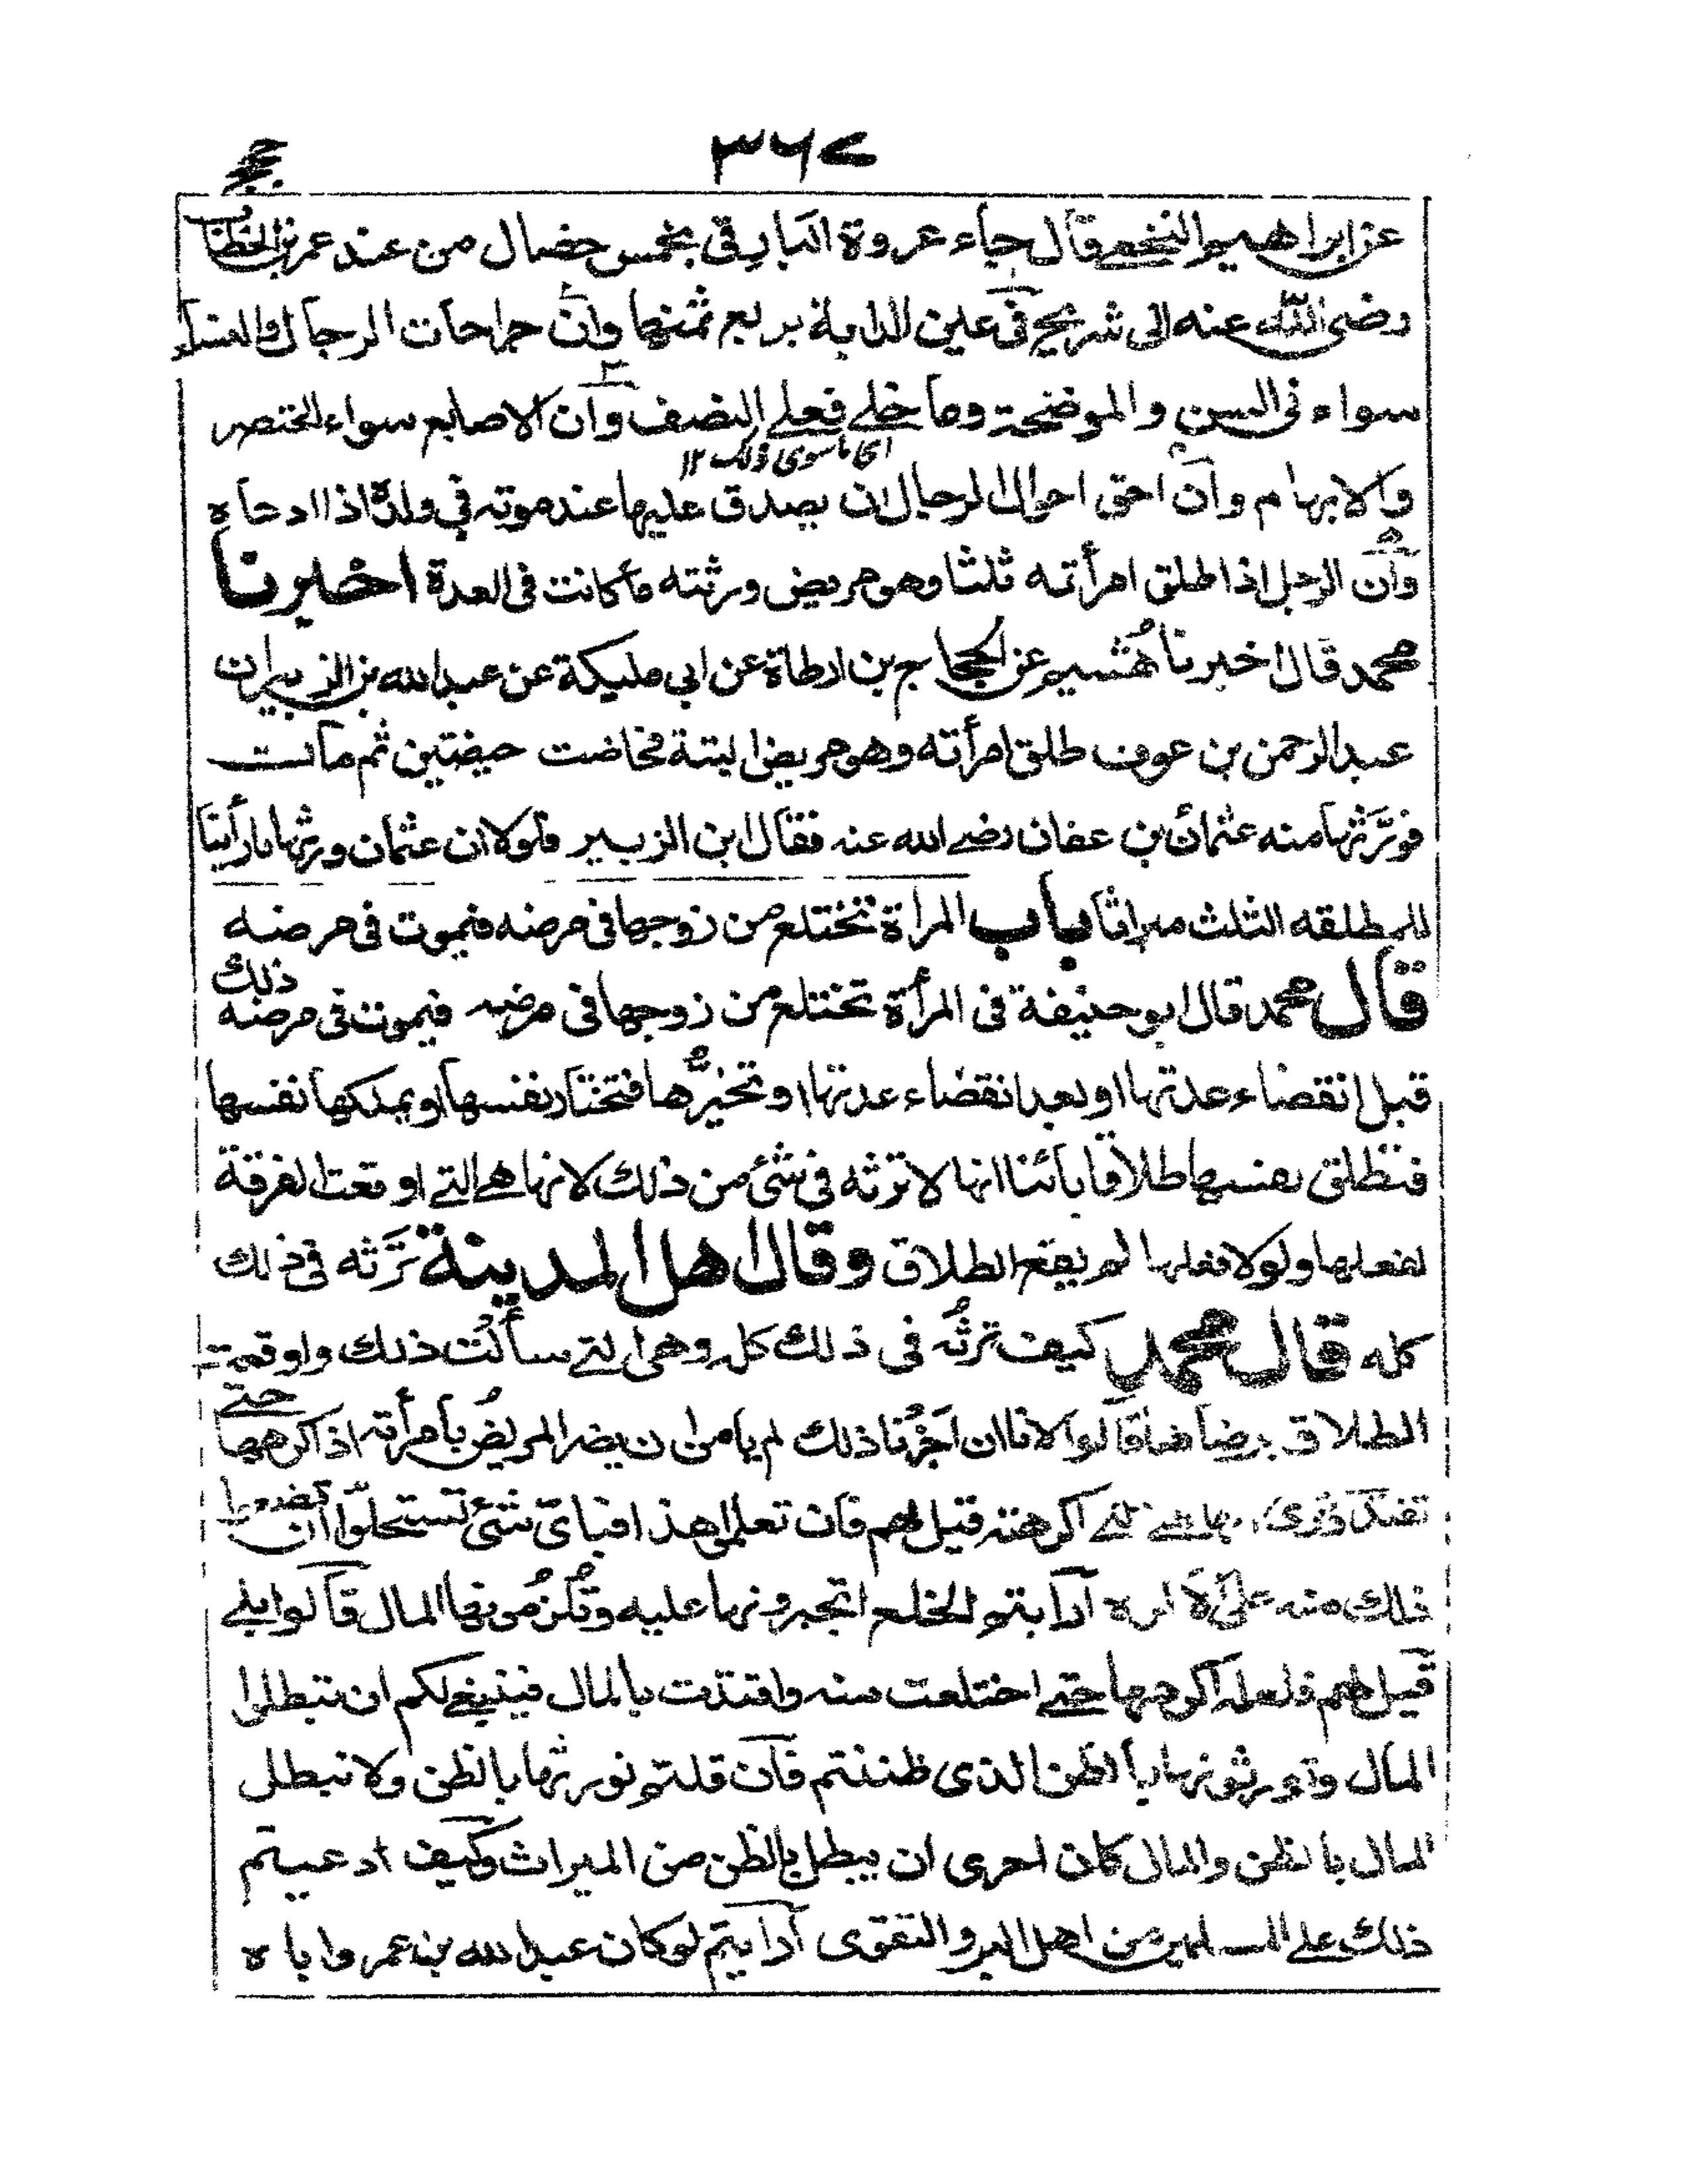 ۳۶۷
عن ابراهيم النخعي قال جاء عروة البارقي بخمس خصال من عند عمر بن الخطاب
رضي الله عنه الى شريح في عين الدابة بربع ثمنها وآن جراحات الرجال والنساء
سواء في السن والموضحة وما خلے فعلے النصف وآن الاصابع سواء الخنصر
ای ما سوی ذلک ۱۲
والابهام وآن احق احوال الرجال ان يصدق عليها عند موته في ولده اذا ادعاه
وآن الرجل اذا طلق امرأته ثلثا وهو مريض ورثته ما كانت في العدة اخبرنا
محمد قال اخبرنا هُشيم عن الحجاج بن ارطاة عن ابي مليكة عن عبدالله بن الزبيران
عبدالرحمن بن عوف طلق امرأته وهو مريض البتة فحاضت حيضتين ثم مات
فورَّثها منه عثمان بن عفان رضے الله عنه فقال ابن الزبير فلولا ان عثمان ورثها ما رأينا
للمطلقه الثلث ميراثا باب المراة تختلع من زوجها في مرضه فيموت في مرضه
قال محمد قال ابو حنيفة في المرأة تختلع من زوجها في مرضه فيموت في مرضه ذلك
قبل انقضاء عدتها او بعد انقضاء عدتها او تخيّرها فتختار نفسها او يملكها نفسها
فتطلق نفسها طلاقا بائنا انها لا ترثه في شئ من ذلك لانها هے التے اوقعت الفرقة
بفعلها ولولا فعلها لم يقع الطلاق وقال اهل المدينة تَرثه في ذلك
كله قال محمد كيف ترثُه في ذلك كله وهى التے سألت ذلك واوقعت
الطلاق برضاها قالوا لانا ان اَجَزْنا ذلك لم يا من ان يضر المريضُ بامرأته اذا كرهها حتے
تفتدى اكرهته قيل لهم فان تعلم هذا فباىّ شئ تستحلّون ان
ذلك منه على أرآيتم الخلع اتجيزونها عليه وتُلزمونها المال قالوا بلے
قيل لهم فلعله اكرهها حتے اختلعت منه وافتدت بالمال فينبغے لكم ان تبطلوا
المال وتورثونها بالظن الذى ظننتم فآن قلتم نورثها بالظن ولا نبطل
المال بالظن والمال كان احرى ان يبطل بالظن من الميراث وكيف ادعيتم
ذلك علے المسلمين من اهل البر والتقوى أرآيتم لو كان عبدالله بن عمر واباه